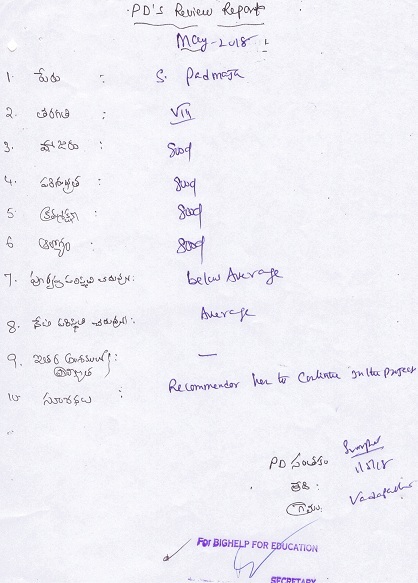 PD'S Review Report
May-2018
1. పేరు : S. Padmaja
2. తరగతి : VIII
3. హాజరు : Good
4. పరిశుభ్రత : Good
5. క్రమశిక్షణ : Good
6. ఆరోగ్యం : Good
7. : below Average
8. : Average
9. ఇతర : —
10 సూచనలు : Recommendor her to Continue in the project
PD సంతకం
1/5/18
తేది :
గ్రామం
For BIGHELP FOR EDUCATION
SECRETARY